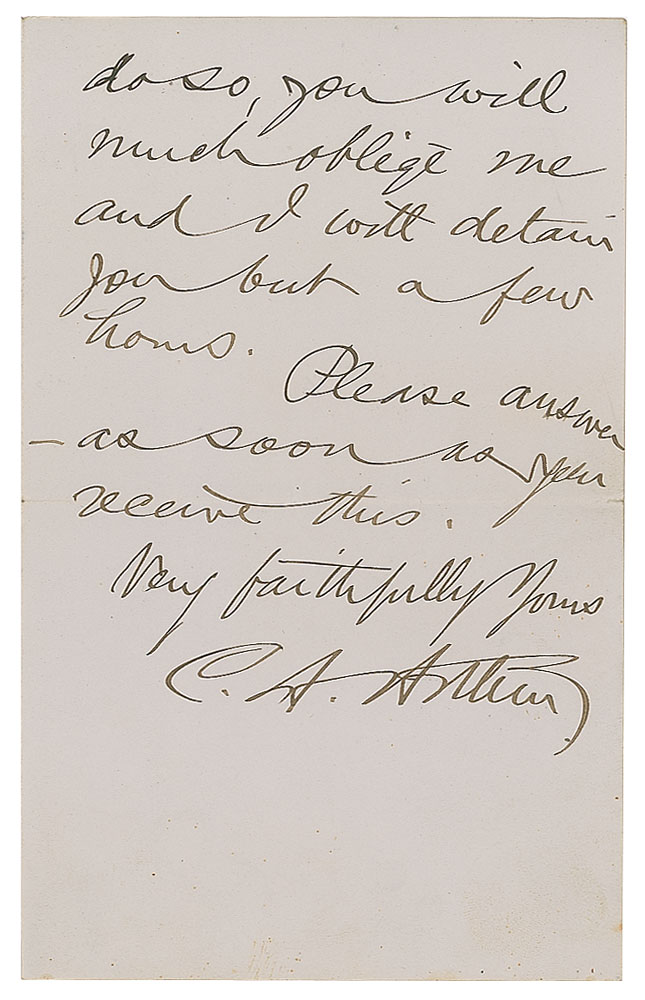 do so, you will
much oblige me
and I will detain
you but a few
hours.
Please answer
- as soon as you
receive this.
Very faithfully Yours
C. A. Arthur